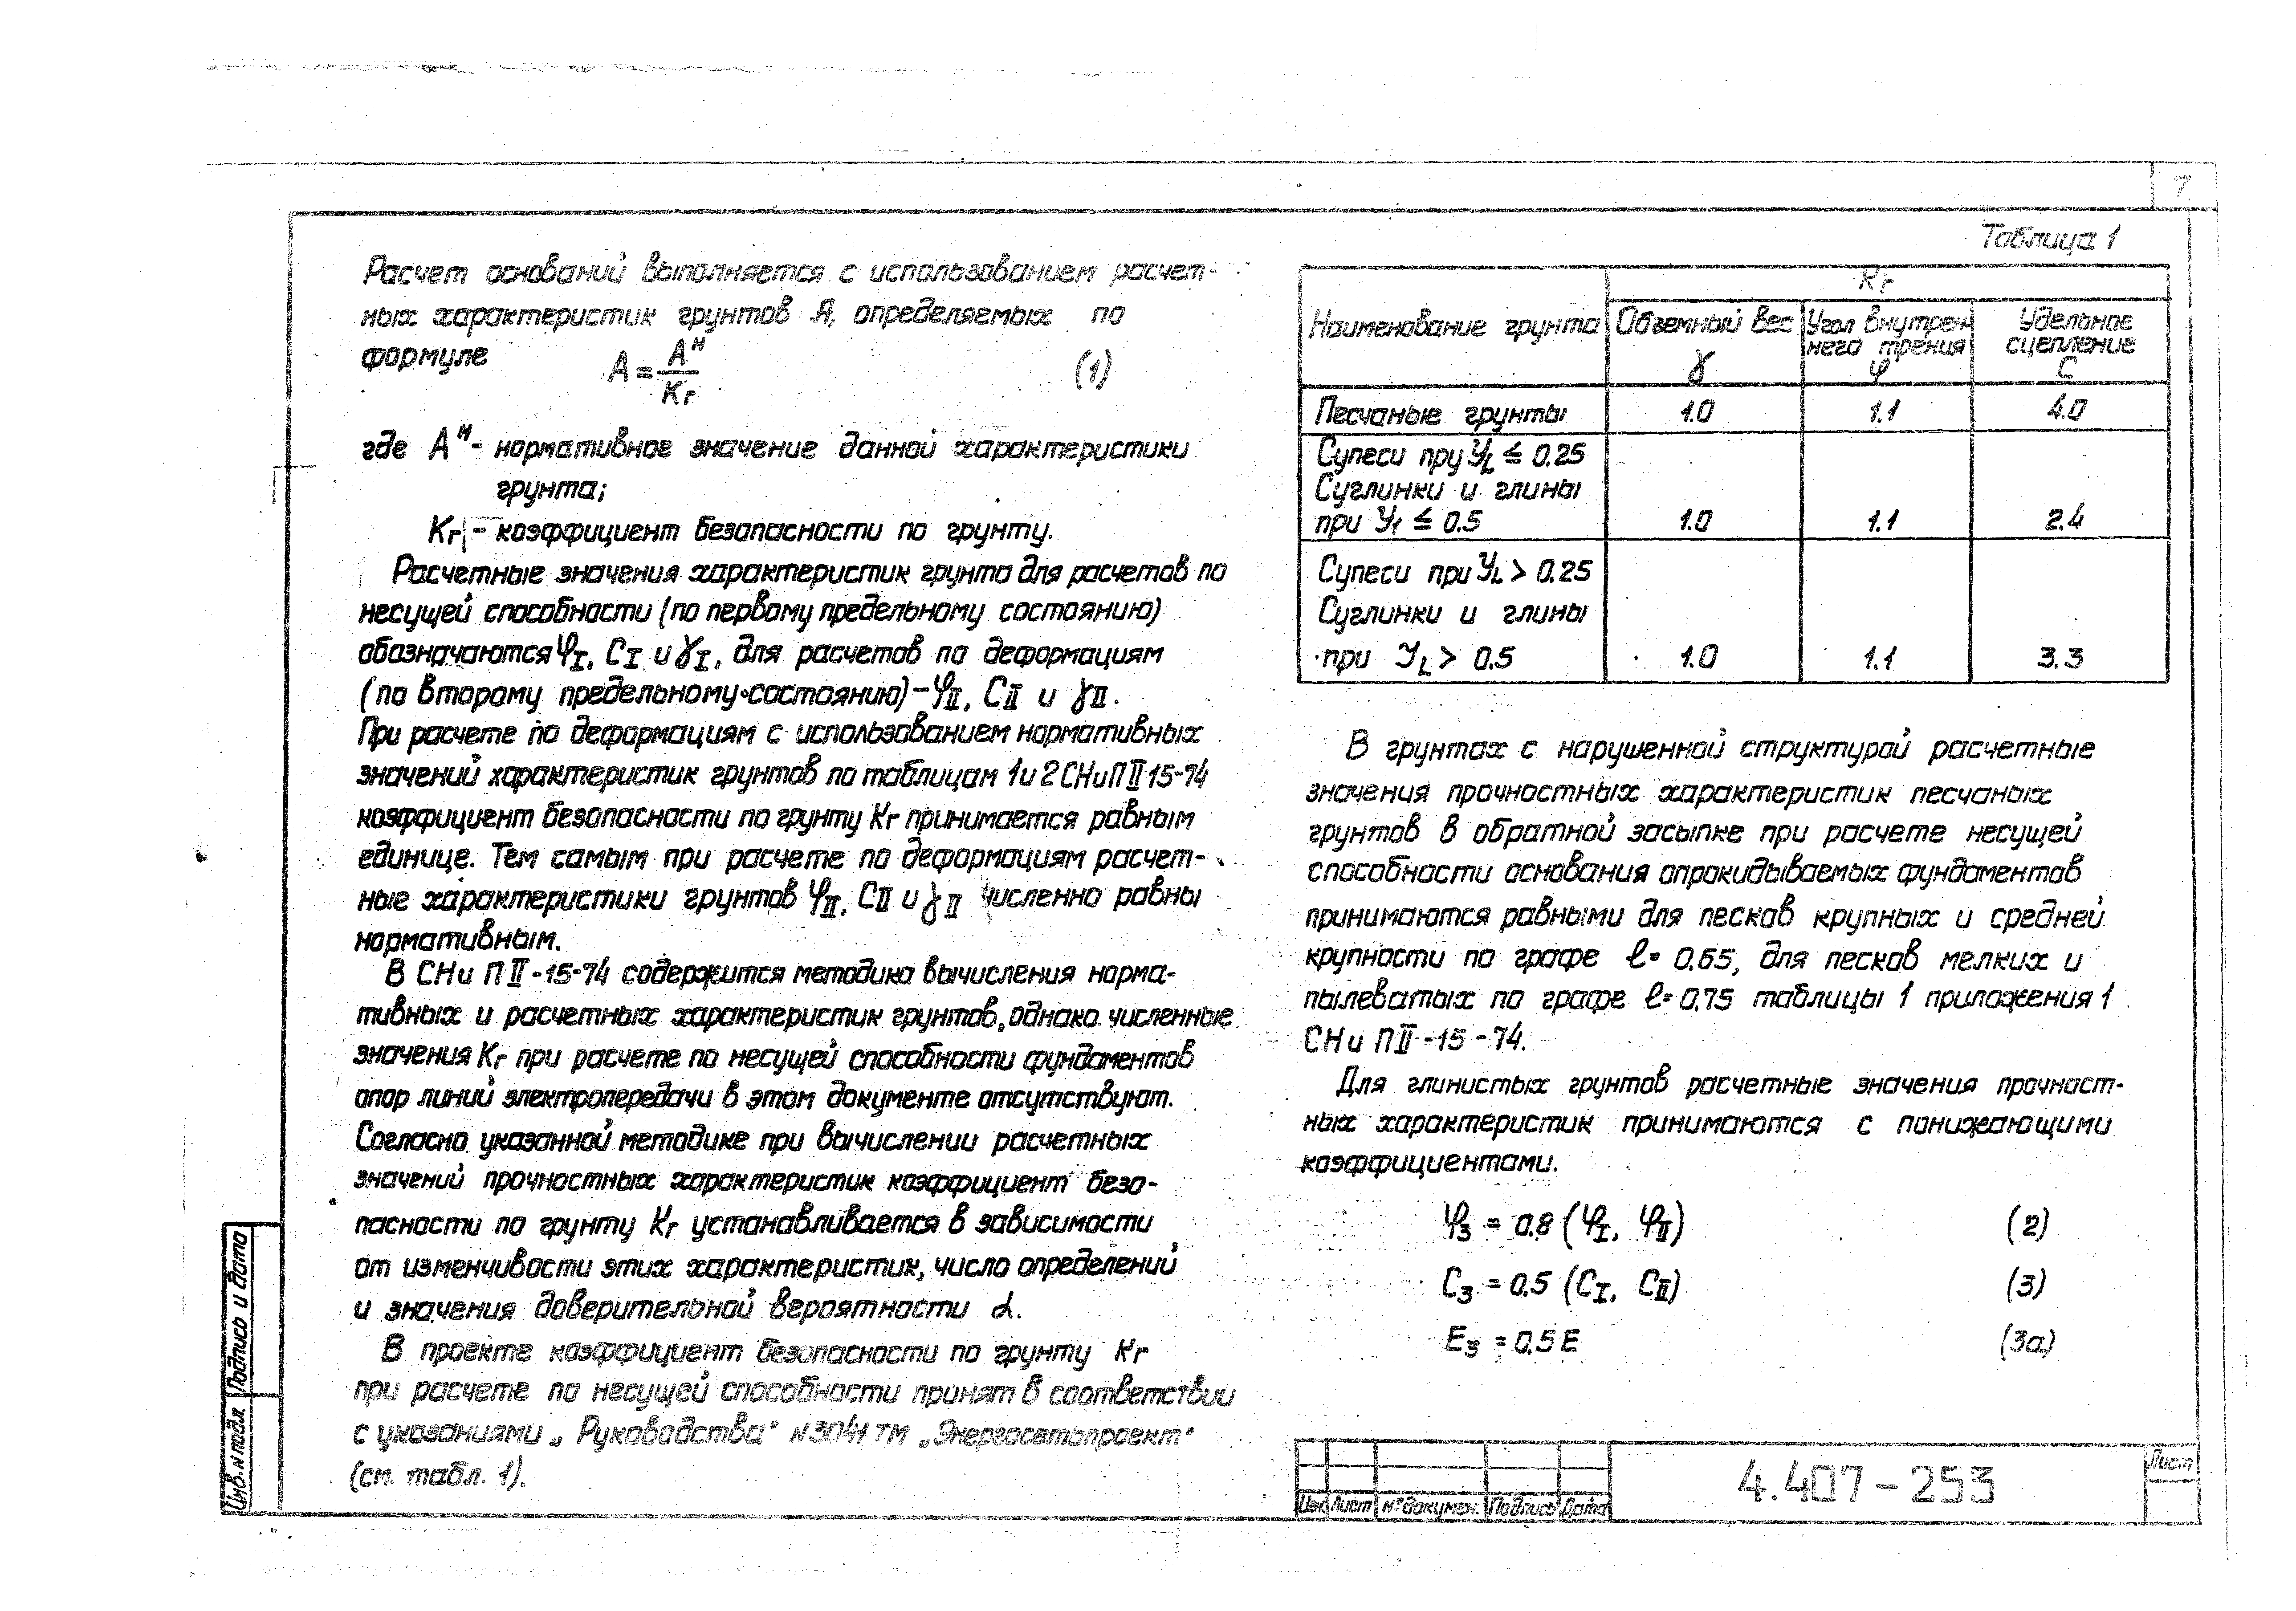 7
Расчет оснований выполняется с использованием расчет-
ных характеристик грунтов А, определяемых по
формуле
A = Aᴴ / Kг (1)
где Aᴴ - нормативное значение данной характеристики
грунта;
Kг - коэффициент безопасности по грунту.
Расчетные значения характеристик грунта для расчетов по
несущей способности (по первому предельному состоянию)
обозначаются φI, CI и γI, для расчетов по деформациям
(по второму предельному состоянию) - φII, CII и γII.
При расчете по деформациям с использованием нормативных
значений характеристик грунтов по таблицам 1 и 2 СНиП II 15-74
коэффициент безопасности по грунту Kг принимается равным
единице. Тем самым при расчете по деформациям расчет-
ные характеристики грунтов φII, CII и γII численно равны
нормативным.
В СНиП II-15-74 содержится методика вычисления норма-
тивных и расчетных характеристик грунтов, однако численные
значения Kг при расчете по несущей способности фундаментов
опор линий электропередачи в этом документе отсутствуют.
Согласно указанной методике при вычислении расчетных
значений прочностных характеристик коэффициент безо-
пасности по грунту Kг устанавливается в зависимости
от изменчивости этих характеристик, число определений
и значения доверительной вероятности α.
В проекте коэффициент безопасности по грунту Kг
при расчете по несущей способности принят в соответствии
с указаниями „Руководства" N3041тм „Энергосетьпроект"
(см. табл. 1).
Таблица 1
Наименование грунта
Kг
Объемный вес γ
Угол внутрен
него трения φ
Удельное
сцепление C
Песчаные грунты 1.0 1.1 4.0
Супеси при УL ≤ 0.25
Суглинки и глины
при У1 ≤ 0.5 1.0 1.1 2.4
Супеси при УL > 0.25
Суглинки и глины
при УL > 0.5 1.0 1.1 3.3
В грунтах с нарушенной структурой расчетные
значения прочностных характеристик песчаных
грунтов в обратной засыпке при расчете несущей
способности основания опрокидываемых фундаментов
принимаются равными для песков крупных и средней
крупности по графе ℓ= 0.65, для песков мелких и
пылеватых по графе ℓ= 0.75 таблицы 1 приложения 1
СНиП II-15-74.
Для глинистых грунтов расчетные значения прочност-
ных характеристик принимаются с понижающими
коэффициентами.
φ3 = 0.8 (φI, φII) (2)
C3 = 0.5 (CI, CII) (3)
E3 = 0.5 E (3а)
Инв. N подл. Подпись и дата
Изм. Лист N° докумен. Подпись Дата
4.407-253
Лист